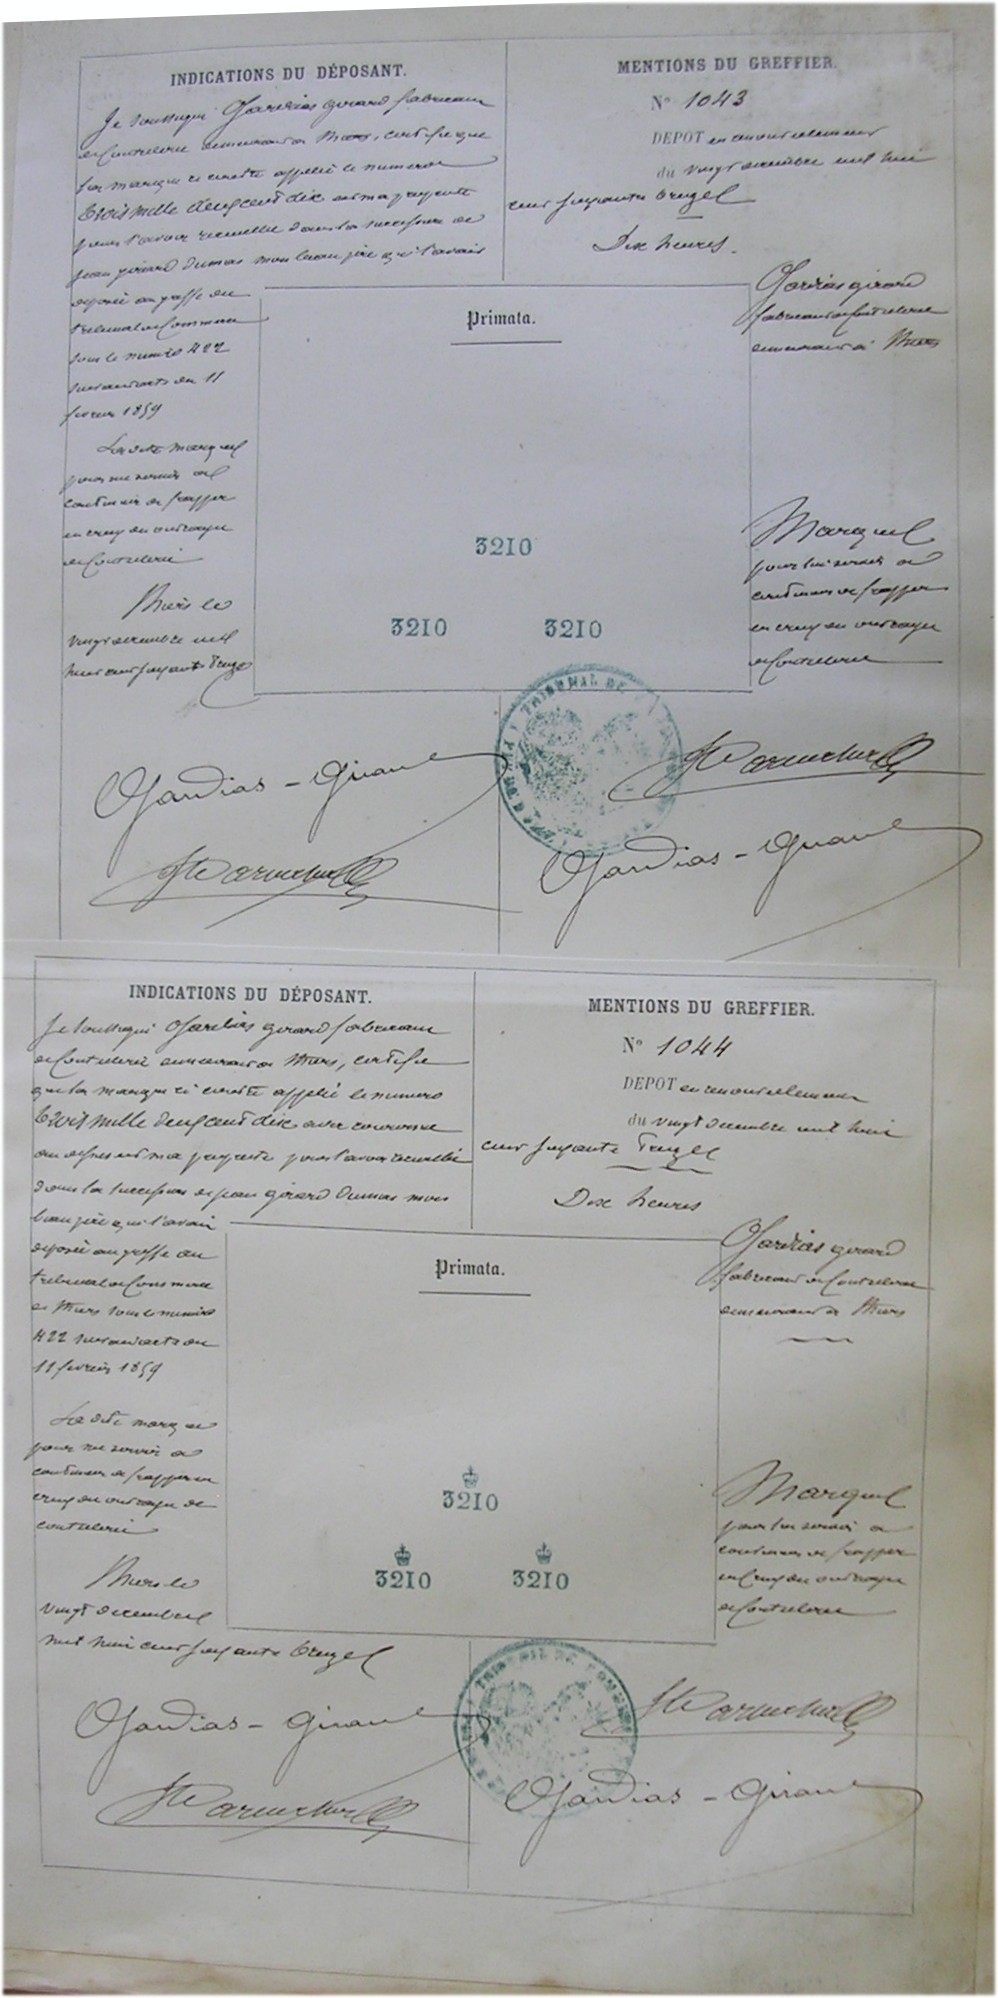 INDICATIONS DU DÉPOSANT.
Je soussigné Gardias girard fabricant
de Coutellerie demeurant à Thiers, certifie que
la marque ci contre appelée le numero
trois mille deux cent dix est ma propriété
pour l'avoir recueillie dans la succession de
jean girard Dumas mon beau père qui l'avait
déposée au greffe du
tribunal de Commerce
sous le numéro 422
suivant acte du 11
fevrier 1859
La dite marque
pour me servir à
continuer de frapper
en creux des ouvrages
de Coutellerie
Thiers le
vingt decembre mil
huit cent soixante treize
MENTIONS DU GREFFIER.
N° 1043
DEPOT en renouvellement
du vingt decembre mil huit
cent soixante treize
Dix heures.
Gardias girard
fabricant de Coutellerie
demeurant à Thiers
Marque
pour lui servir à
continuer de frapper
en creux des ouvrages
de Coutellerie
Primata.
3210
3210 3210
TRIBUNAL DE
Gardias - Girard
Gardias - Girard
INDICATIONS DU DÉPOSANT.
Je soussigné Gardias girard fabricant
de Coutellerie demeurant à Thiers, certifie
que la marque ci contre appelée le numero
trois mille deux cent dix avec couronne
au dessus est ma propriété pour l'avoir recueillie
dans la succession de jean girard Dumas mon
beau père qui l'avait
déposée au greffe du
tribunal de Commerce
de Thiers sous le numéro
422 suivant acte du
11 fevrier 1859
La dite marque
pour me servir à
continuer de frapper en
creux des ouvrages de
coutellerie
Thiers le
vingt decembre
mil huit cent soixante treize
MENTIONS DU GREFFIER.
N° 1044
DEPOT en renouvellement
du vingt decembre mil huit
cent soixante Treize
Dix heures
Gardias girard
fabricant de Coutellerie
demeurant à Thiers
Marque
pour lui servir à
continuer de frapper
en Creux des ouvrages
de Coutellerie
Primata.
3210
3210 3210
TRIBUNAL DE COMM
Gardias - Girard
Gardias - Girard